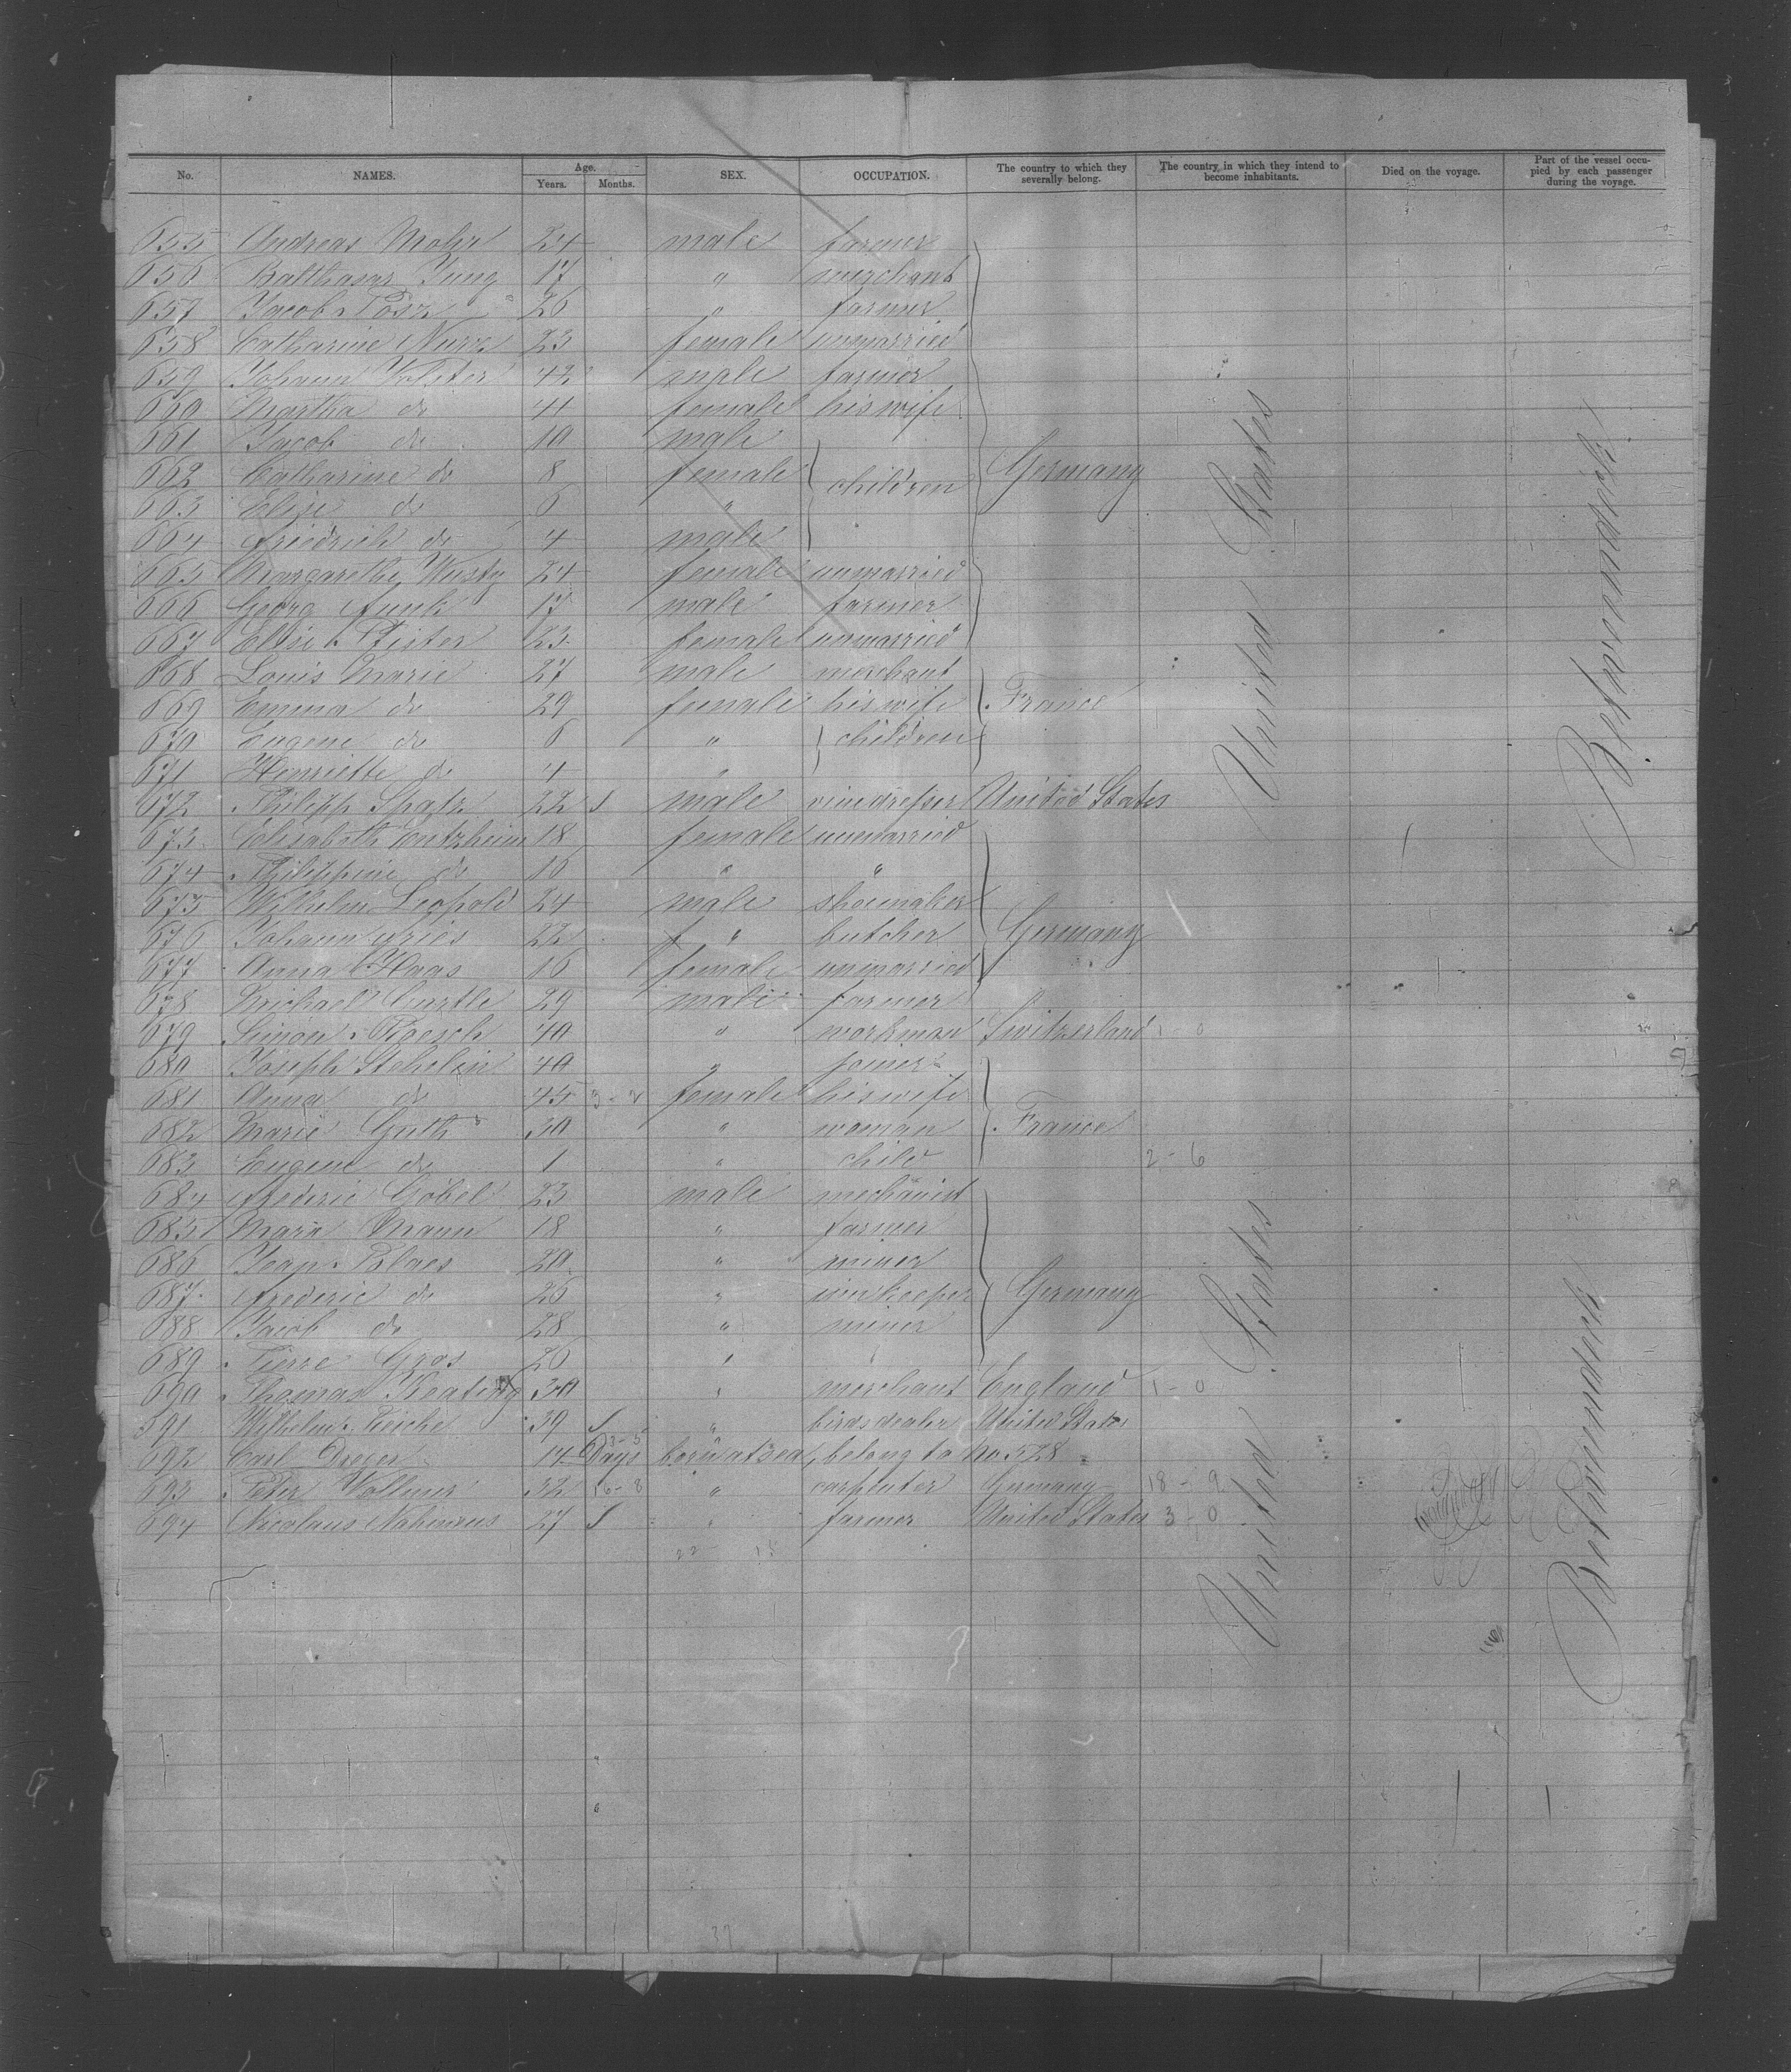 No. NAMES. Age. Years. Months. SEX. OCCUPATION. The country to which they severally belong. The country in which they intend to become inhabitants. Died on the voyage. Part of the vessel occupied by each passenger during the voyage.
655 Andreas Mohr 24 male farmer
656 Balthasar Jung 17 " merchant
657 Jacob 26 " farmer
658 Catharine 23 female unmarried
659 Johann 42 male farmer
660 Martha do 41 female his wife
661 Jacob do 10 male
662 Catharine do 8 female children Germany
663 Elise do 6 "
664 Friedrich do 4 male
665 Margarethe 24 female unmarried
666 Georg Funk 17 male farmer
667 Elise Pfister 23 female unmarried
668 Louis Marie 27 male merchant
669 Emma do 29 female his wife France
670 Eugene do 6 " children
671 Henriette do 4 "
672 Philipp Spatz 22 male vinedresser United States
673 Elisabeth Entzheim 18 female unmarried
674 Philippine do 16 " "
675 Wilhelm Leopold 24 male shoemaker
676 Johann Fries 22 " butcher Germany
677 Anna Haas 16 female unmarried
678 Michael 29 male farmer
679 Simon Roesch 40 " workman Switzerland
680 Joseph Stehelin 40 " joiner
681 Anna do 45 3-2 female his wife
682 Marie Guth 30 " woman France
683 Eugene do 1 " child 2-6
684 Frederic Göbel 23 male mechanist
685 Marx Mann 18 " farmer
686 Blaes 20 " miner
687 Frederic do 26 " innkeeper Germany
688 Jacob do 28 " miner
689 Pierre Gros 20 "
690 Thomas Keating 30 " merchant England 1-0
691 Wilhelm Reiche 39 " birdsdealer United States
692 Carl Dreyer 14 Days 3-5 born at sea, belong to No. 528
693 Peter Vollmer 32 16-8 " carpenter Germany 18-9
694 Nicolaus 27 " farmer United States 3-0
United States
United States
Betweendeck
Betweendeck
37